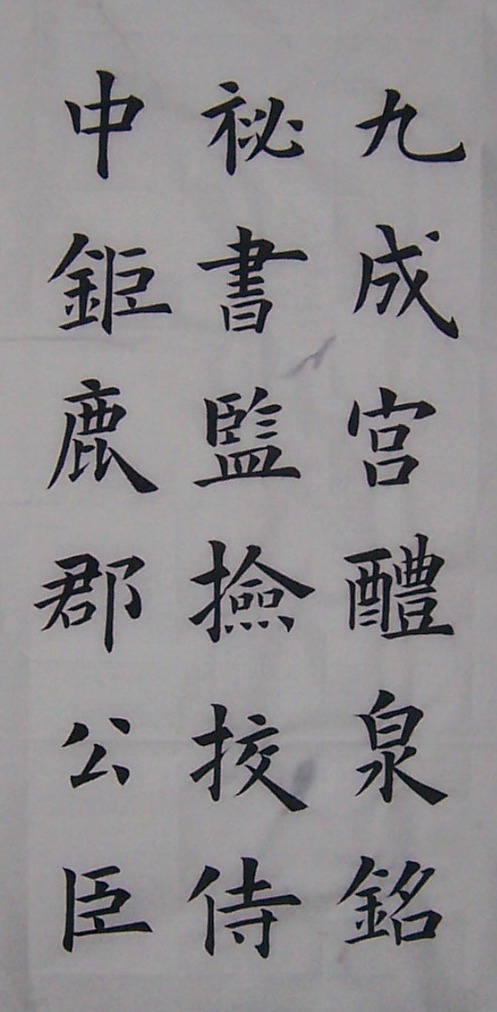 九成宫醴泉銘
祕書監撿挍侍
中鉅鹿郡公臣